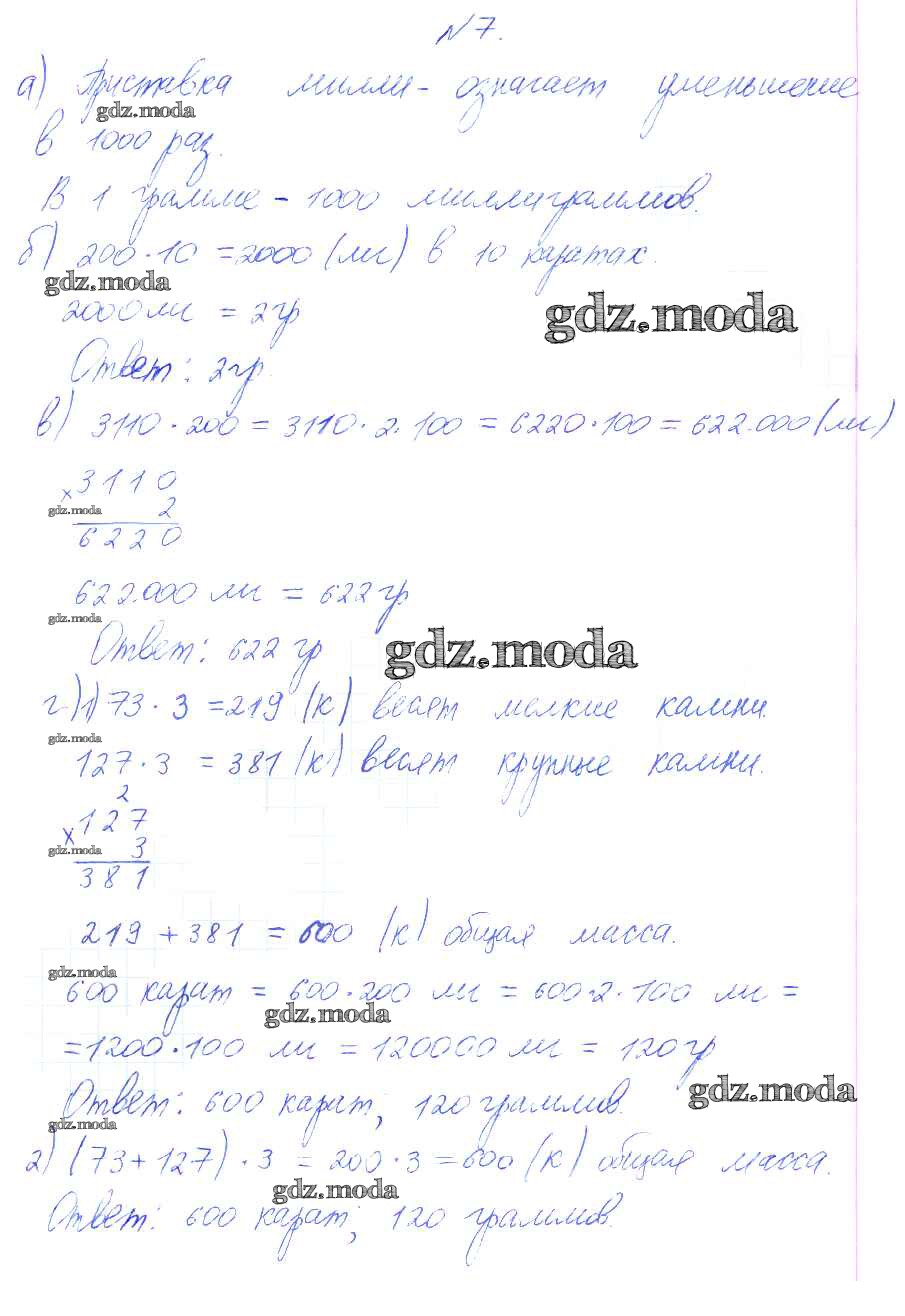 №7.
а) Приставка милли- означает уменьшение
gdz.moda
в 1000 раз.
В 1 грамме - 1000 миллиграммов.
б) 200 · 10 = 2000 (мг) в 10 каратах.
gdz.moda
2000 мг = 2 гр
gdz.moda
Ответ: 2 гр.
в) 3110 · 200 = 3110 · 2 · 100 = 6220 · 100 = 622.000 (мг)
× 3110
gdz.moda 2
6220
622.000 мг = 622 гр
gdz.moda
Ответ: 622 гр
gdz.moda
г) 1) 73 · 3 = 219 (к) весят мелкие камни.
gdz.moda
127 · 3 = 381 (к) весят крупные камни.
2
× 127
gdz.moda 3
381
219 + 381 = 600 (к) общая масса.
gdz.moda
600 карат = 600 · 200 мг = 600 · 2 · 100 мг =
gdz.moda
= 1200 · 100 мг = 120000 мг = 120 гр
gdz.moda
Ответ: 600 карат, 120 граммов.
gdz.moda
2) (73 + 127) · 3 = 200 · 3 = 600 (к) общая масса.
gdz.moda
Ответ: 600 карат, 120 граммов.